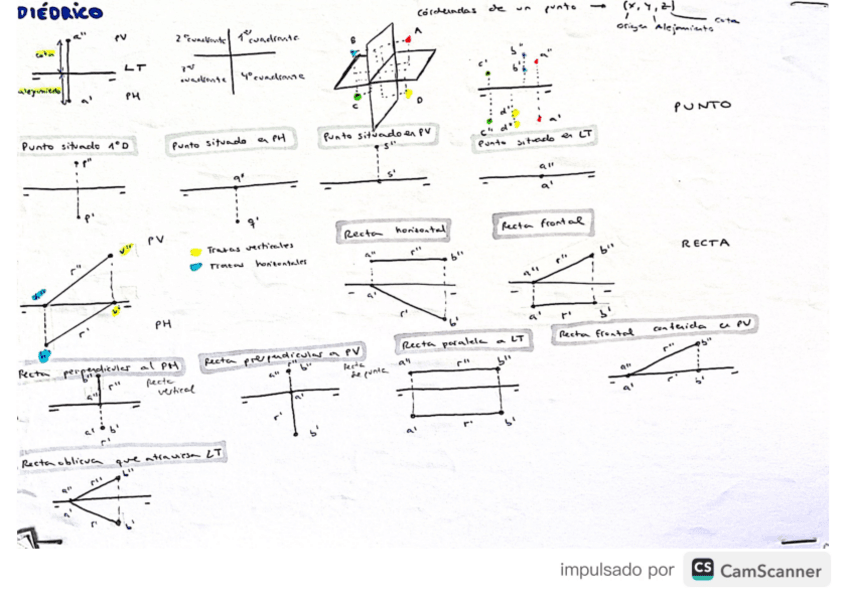 DIÉDRICO
Coordenadas de un punto → (X, Y, Z)
origen Alejamiento cota
a" PV
cota
LT
alejamiento
a' PH
2º cuadrante 1er cuadrante
3er cuadrante 4º cuadrante
B A
C D
b" a"
c' b'
d'
c" d" a'
PUNTO
Punto situado 1º D
Punto situado en PH
Punto situado en PV
Punto situado en LT
p"
p'
q"
q'
s"
s'
a"
a'
PV
v"
r"
h"
v'
r'
h'
PH
Trazas verticales
Trazas horizontales
Recta horizontal
a" r" b"
a'
r'
b'
Recta frontal
b"
r"
a"
a' r' b'
RECTA
Recta perpendicular al PH
b"
r"
a"
Recta vertical
a' b'
r'
Recta perpendicular a PV
a" b"
r"
Recta de punta
a'
r'
b'
Recta paralela a LT
a" r" b"
a' r' b'
Recta frontal contenida en PV
b"
r"
a"
a' r' b'
Recta oblicua que atraviesa LT
b"
r"
a"
a'
r' b'
impulsado por CS CamScanner